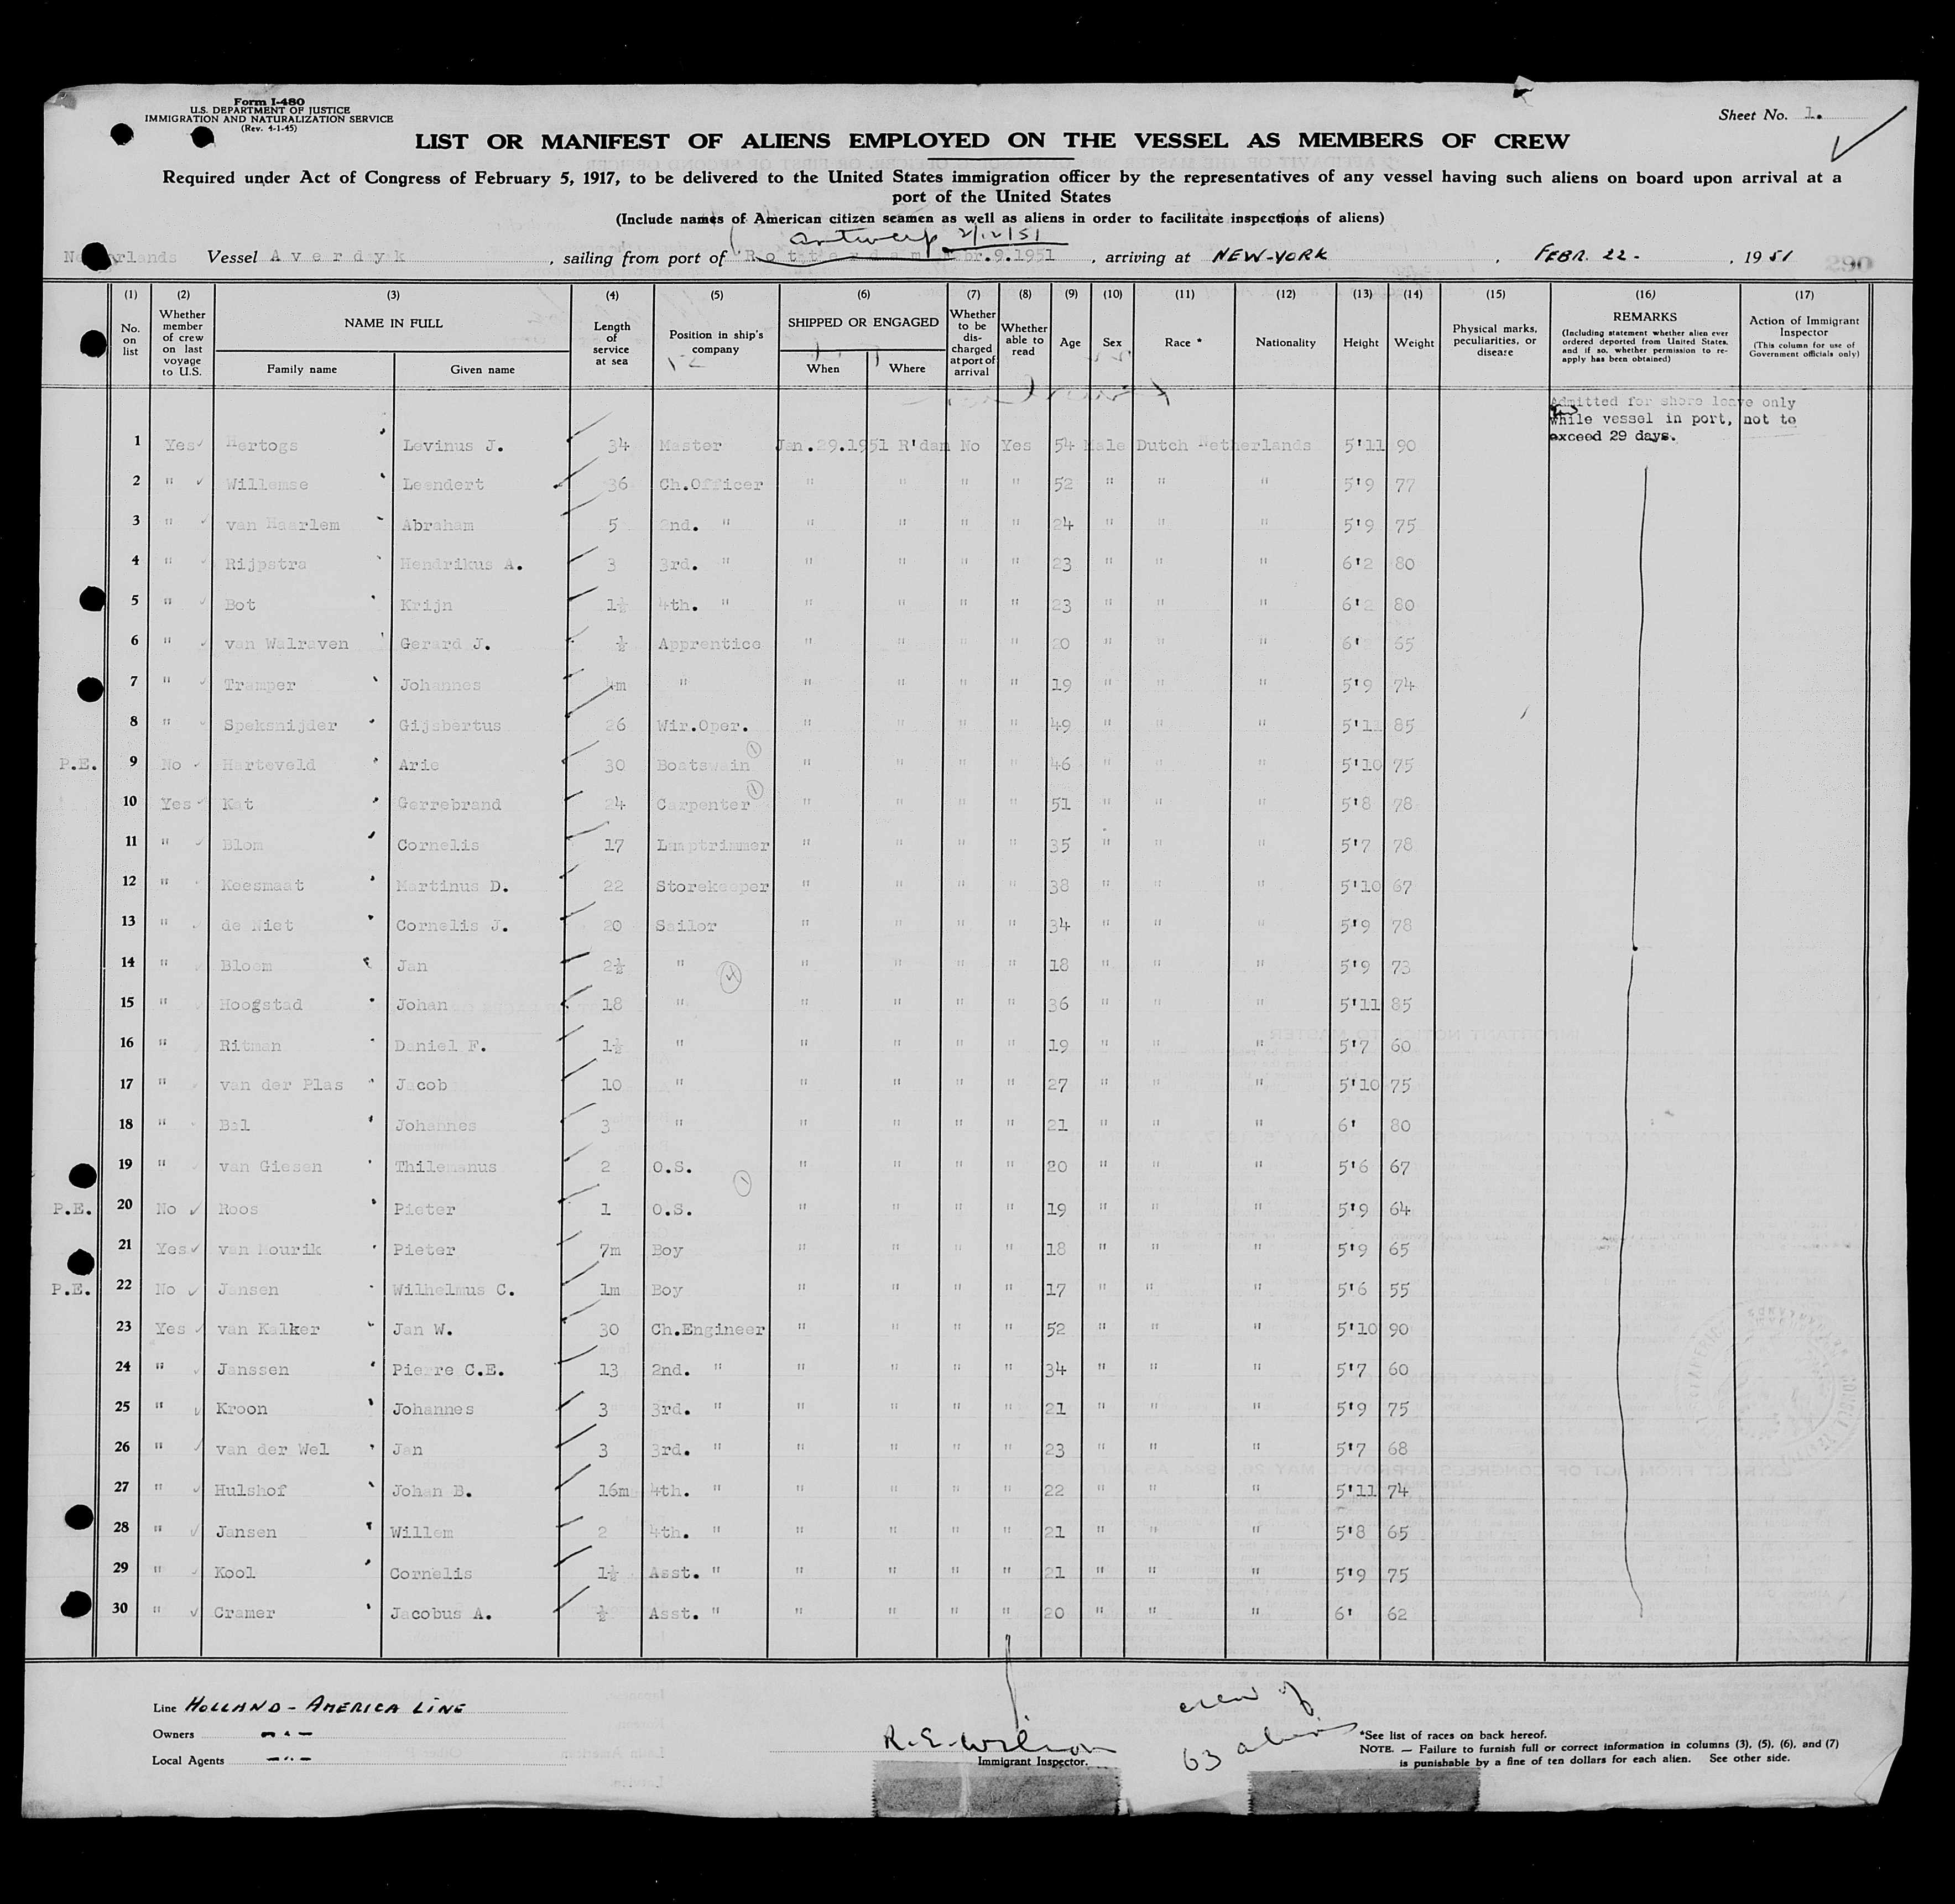 Form I-480
U.S. DEPARTMENT OF JUSTICE
IMMIGRATION AND NATURALIZATION SERVICE
(Rev. 4-1-45)
Sheet No. 1.
LIST OR MANIFEST OF ALIENS EMPLOYED ON THE VESSEL AS MEMBERS OF CREW
Required under Act of Congress of February 5, 1917, to be delivered to the United States immigration officer by the representatives of any vessel having such aliens on board upon arrival at a
port of the United States
(Include names of American citizen seamen as well as aliens in order to facilitate inspections of aliens)
Antwerp 2/12/51
Netherlands Vessel Averdyk, sailing from port of Rotterdam Febr.9.1951, arriving at NEW-YORK, FEBR. 22-, 1951 290
(1) (2) (3) (4) (5) (6) (7) (8) (9) (10) (11) (12) (13) (14) (15) (16) (17)
No. on list | Whether member of crew on last voyage to U.S. | NAME IN FULL | Family name | Given name | Length of service at sea | Position in ship's company | SHIPPED OR ENGAGED | When | Where | Whether to be discharged at port of arrival | Whether able to read | Age | Sex | Race * | Nationality | Height | Weight | Physical marks, peculiarities, or disease | REMARKS (Including statement whether alien ever ordered deported from United States, and if so, whether permission to reapply has been obtained) | Action of Immigrant Inspector (This column for use of Government officials only)
Admitted for shore leave only
while vessel in port, not to
exceed 29 days.
1 Yes Hertogs Levinus J. 34 Master Jan.29.1951 R'dam No Yes 54 Male Dutch Netherlands 5'11 90
2 " Willemse Leendert 36 Ch.Officer " " " " 52 " " " 5'9 77
3 " van Haarlem Abraham 5 2nd. " " " " " 24 " " " 5'9 75
4 " Rijpstra Hendrikus A. 3 3rd. " " " " " 23 " " " 6'2 80
5 " Bot Krijn 1½ 4th. " " " " " 23 " " " 6'2 80
6 " van Walraven Gerard J. ½ Apprentice " " " " 20 " " " 6' 65
7 " Tramper Johannes 4m " " " " " 19 " " " 5'9 74
8 " Speksnijder Gijsbertus 26 Wir.Oper. " " " " 49 " " " 5'11 85
P.E. 9 No Harteveld Arie 30 Boatswain 1 " " " " 46 " " " 5'10 75
10 Yes Kat Gerrebrand 24 Carpenter 1 " " " " 51 " " " 5'8 78
11 " Blom Cornelis 17 Lamptrimmer " " " " 35 " " " 5'7 78
12 " Keesmaat Martinus D. 22 Storekeeper " " " " 38 " " " 5'10 67
13 " de Niet Cornelis J. 20 Sailor " " " " 34 " " " 5'9 78
14 " Bloem Jan 2½ " " " " " 18 " " " 5'9 73
15 " Hoogstad Johan 18 " " " " " 36 " " " 5'11 85
16 " Ritman Daniel F. 1½ " " " " " 19 " " " 5'7 60
17 " van der Plas Jacob 10 " " " " " 27 " " " 5'10 75
18 " Bal Johannes 3 " " " " " 21 " " " 6' 80
19 " van Giesen Thilemanus 2 O.S. " " " " 20 " " " 5'6 67
P.E. 20 No Roos Pieter 1 O.S. 1 " " " " 19 " " " 5'9 64
21 Yes van Mourik Pieter 7m Boy " " " " 18 " " " 5'9 65
P.E. 22 No Jansen Wilhelmus C. 1m Boy " " " " 17 " " " 5'6 55
23 Yes van Kalker Jan W. 30 Ch.Engineer " " " " 52 " " " 5'10 90
24 " Janssen Pierre C.E. 13 2nd. " " " " " 34 " " " 5'7 60
25 " Kroon Johannes 3 3rd. " " " " " 21 " " " 5'9 75
26 " van der Wel Jan 3 3rd. " " " " " 23 " " " 5'7 68
27 " Hulshof Johan B. 16m 4th. " " " " " 22 " " " 5'11 74
28 " Jansen Willem 2 4th. " " " " " 21 " " " 5'8 65
29 " Kool Cornelis 1½ Asst. " " " " " 21 " " " 5'9 75
30 " Cramer Jacobus A. ½ Asst. " " " " " 20 " " " 6' 62
Line HOLLAND-AMERICA LINE
Owners -"-
Local Agents -"-
R. E. Wilson
Immigrant Inspector.
crew of
63 aliens
*See list of races on back hereof.
NOTE. — Failure to furnish full or correct information in columns (3), (5), (6), and (7)
is punishable by a fine of ten dollars for each alien. See other side.